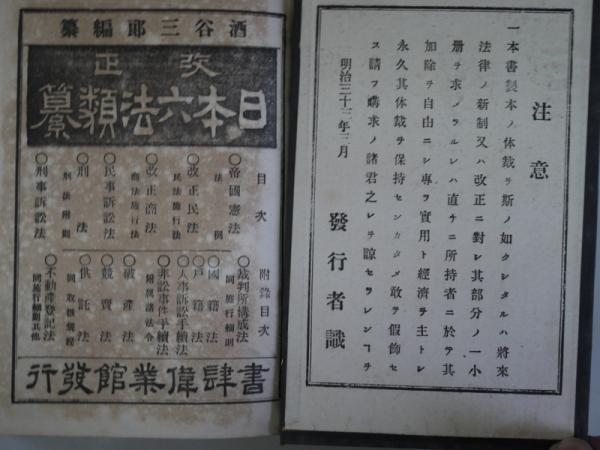 注意
一本書製本ノ体裁ヲ斯ノ如クシタルハ將來
法律ノ新制又ハ改正ニ對レ其部分ノ一小
册ヲ求メラルレハ直チニ所持者ニ於テ其
加除ヲ自由ニシ專ラ實用ト經濟ヲ主トレ
永久其体裁ヲ保持センカタメ敢テ假飾セ
ス請フ購求ノ諸君之レヲ諒セラレンコヲ
明治三十三年三月
發行者識
酒谷三郎編纂
改正
日本六法類纂
目次
○帝國憲法
法例
○改正民法
民法施行法
○改正商法
商法施行法
○民事訴訟法
○刑法
刑法附則
○刑事訴訟法
附錄目次
○裁判所構成法
同施行細則
○國籍法
○戸籍法
○人事訴訟手續法
○非訟事件手續法
附異議法令
○破產法
○競賣法
○供託法
同取扱規程
○不動產登記法
同施行細則其他
書肆偉業館發行